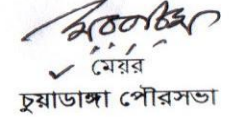 মেয়র
চুয়াডাঙ্গা পৌরসভা